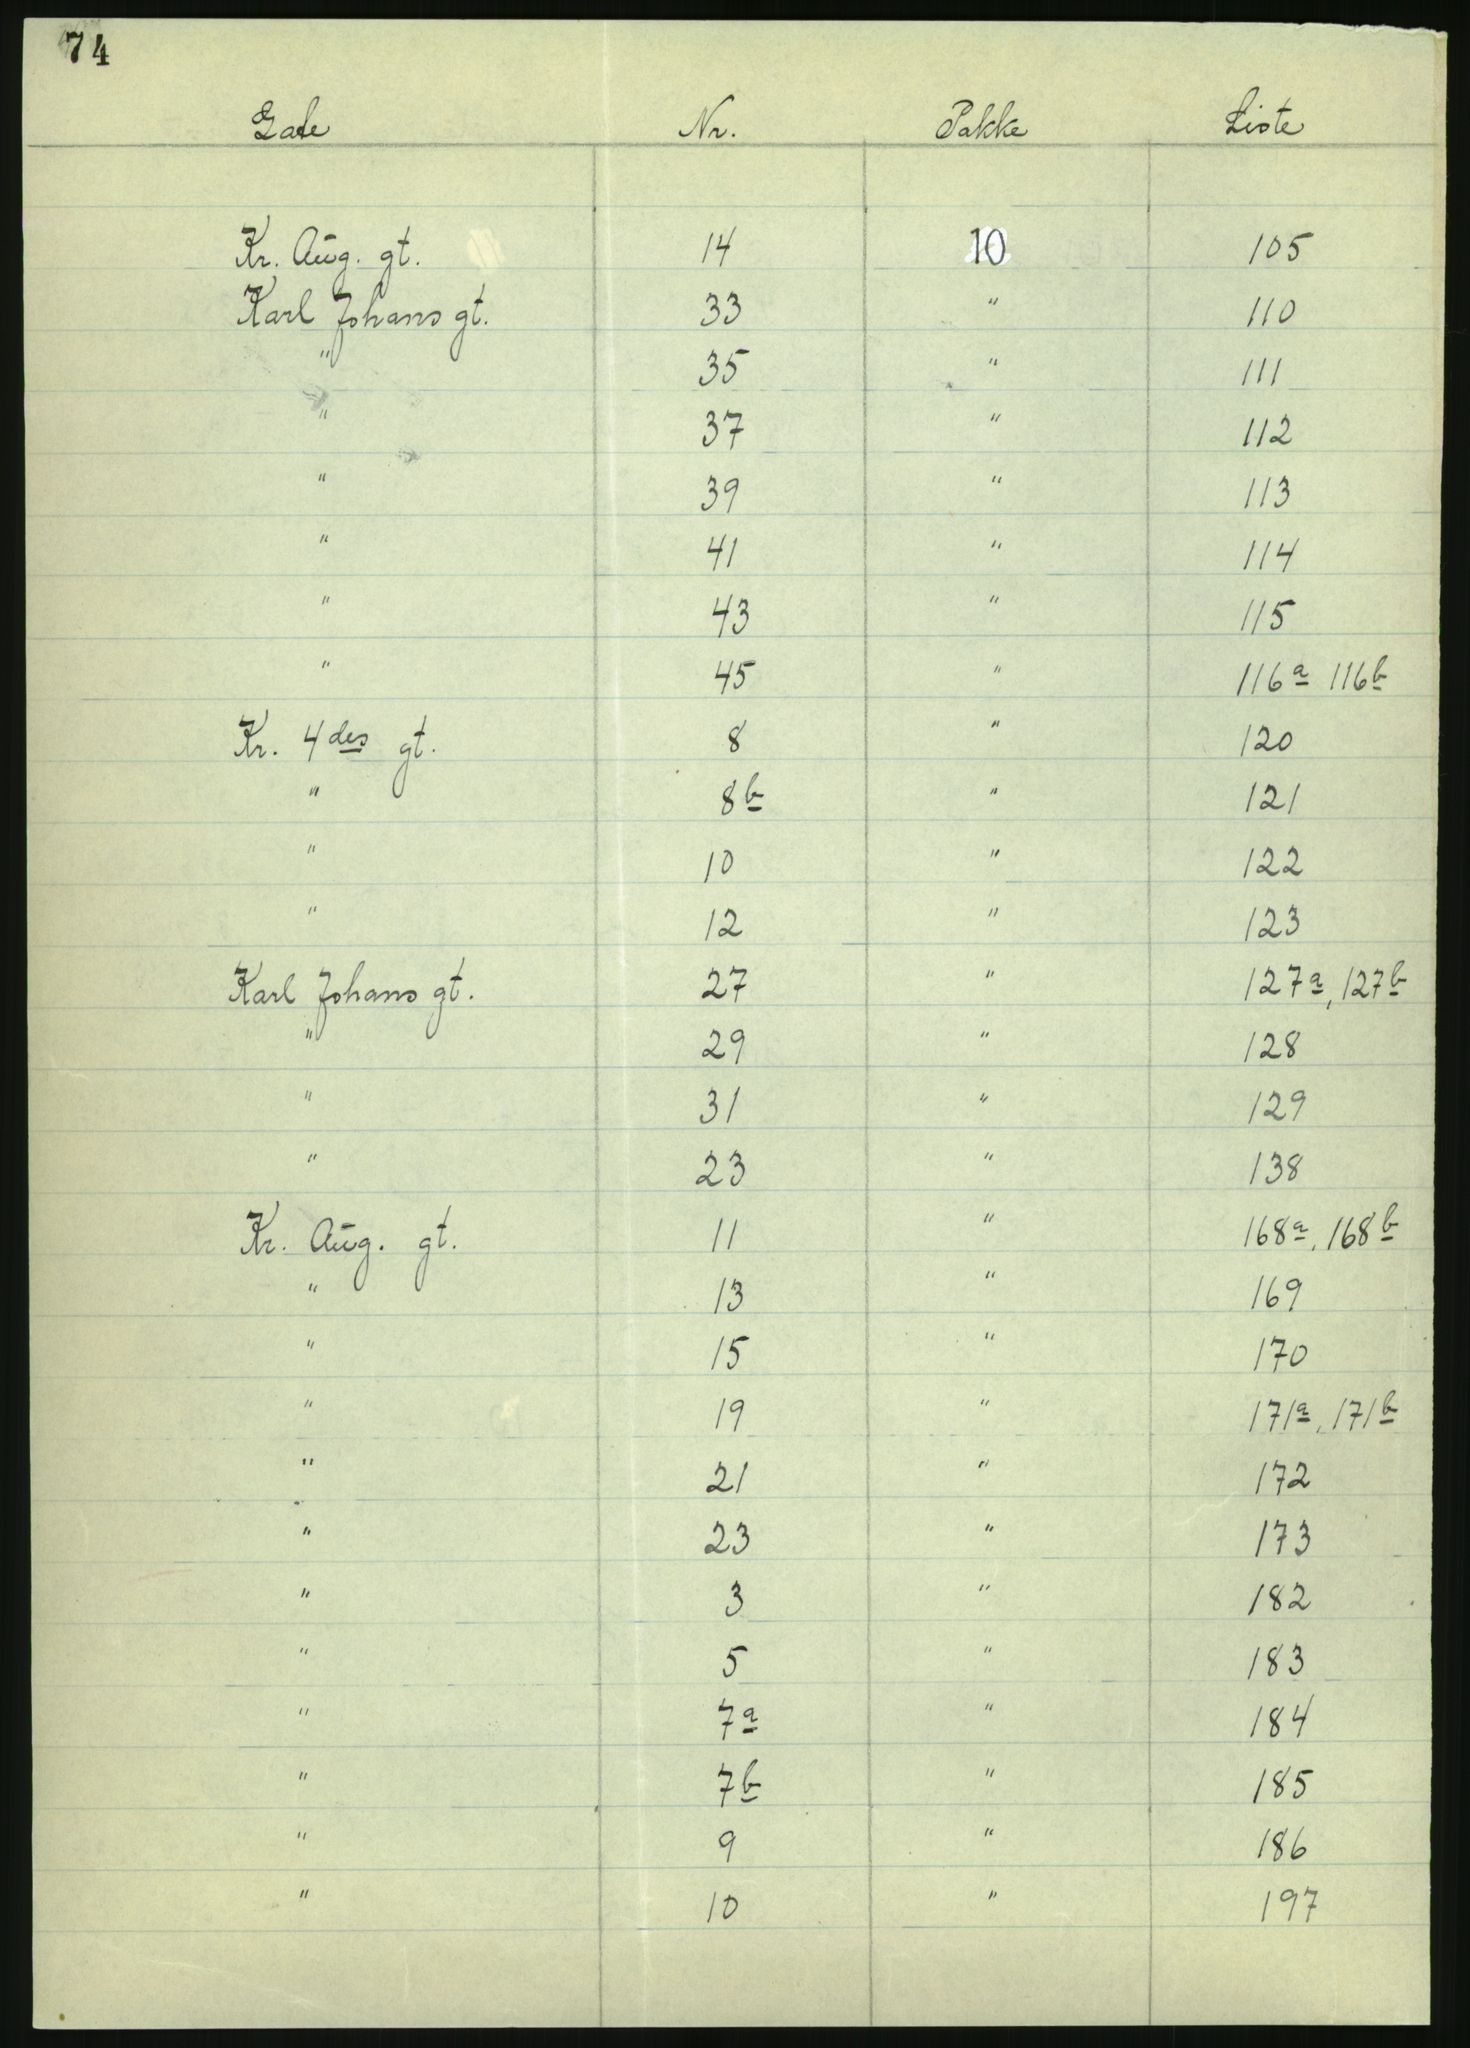 74
Gate Nr. Pakke Liste
Kr. Aug. gt. 14 10 105
Karl Johans gt. 33 " 110
" 35 " 111
" 37 " 112
" 39 " 113
" 41 " 114
" 43 " 115
" 45 " 116a 116b
Kr. 4des gt. 8 " 120
" 8b " 121
" 10 " 122
" 12 " 123
Karl Johans gt. 27 " 127a, 127b
" 29 " 128
" 31 " 129
" 23 " 138
Kr. Aug. gt. 11 " 168a, 168b
" 13 " 169
" 15 " 170
" 19 " 171a, 171b
" 21 " 172
" 23 " 173
" 3 " 182
" 5 " 183
" 7a " 184
" 7b " 185
" 9 " 186
" 10 " 197